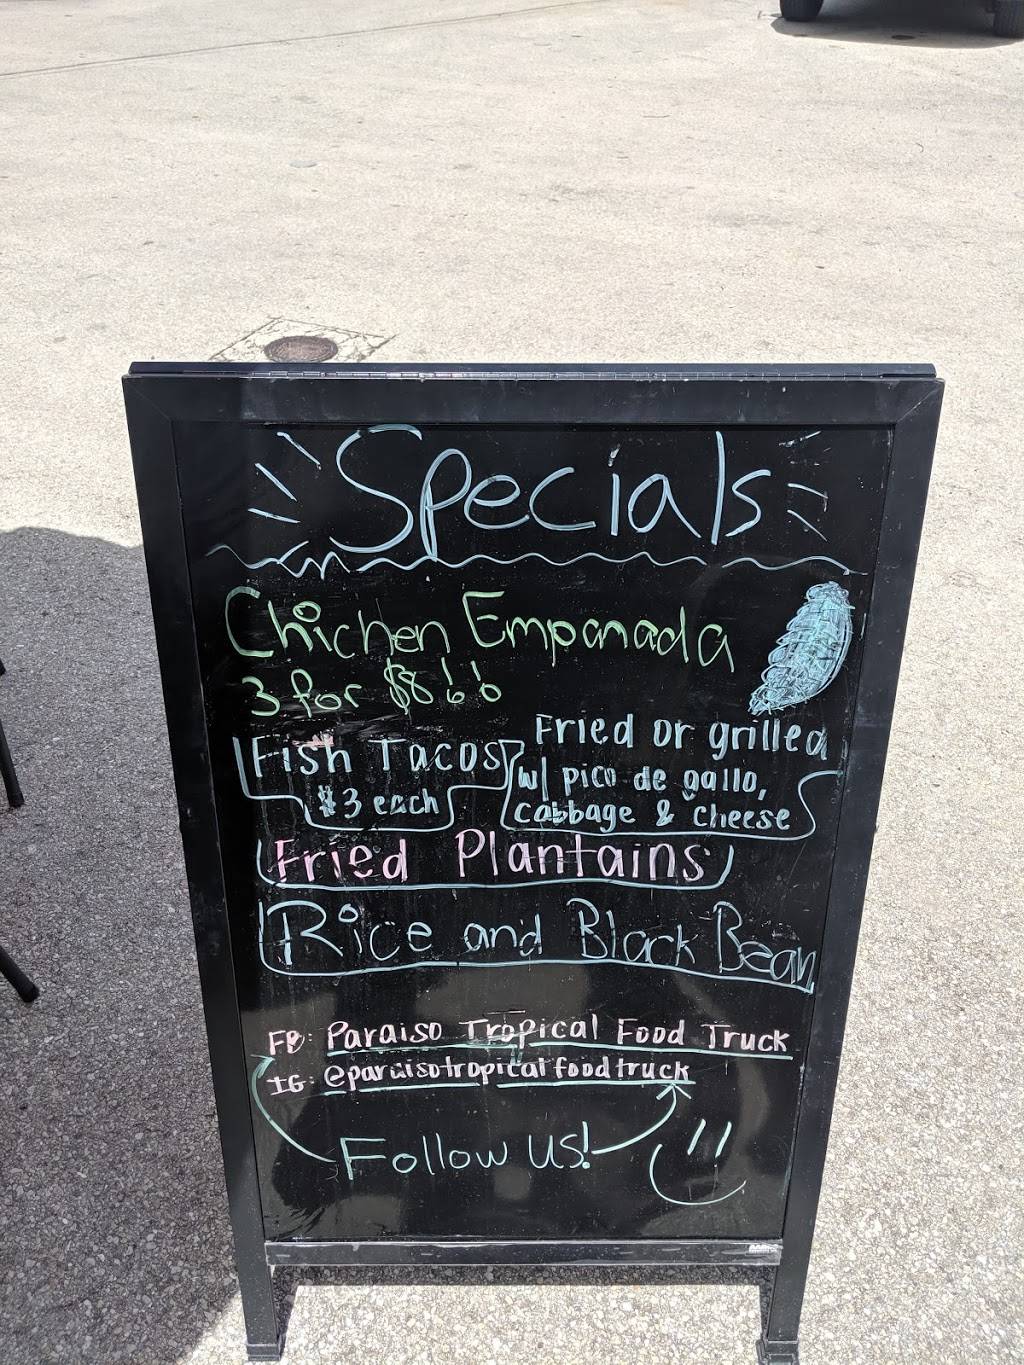 Specials
Chicken Empanada
3 for $8!!
Fish Tacos
$3 each
Fried or grilled
w/ pico de gallo,
cabbage & cheese
Fried Plantains
Rice and Black Bean
FB: Paraiso Tropical Food Truck
IG: @paraisotropicalfoodtruck
Follow us!